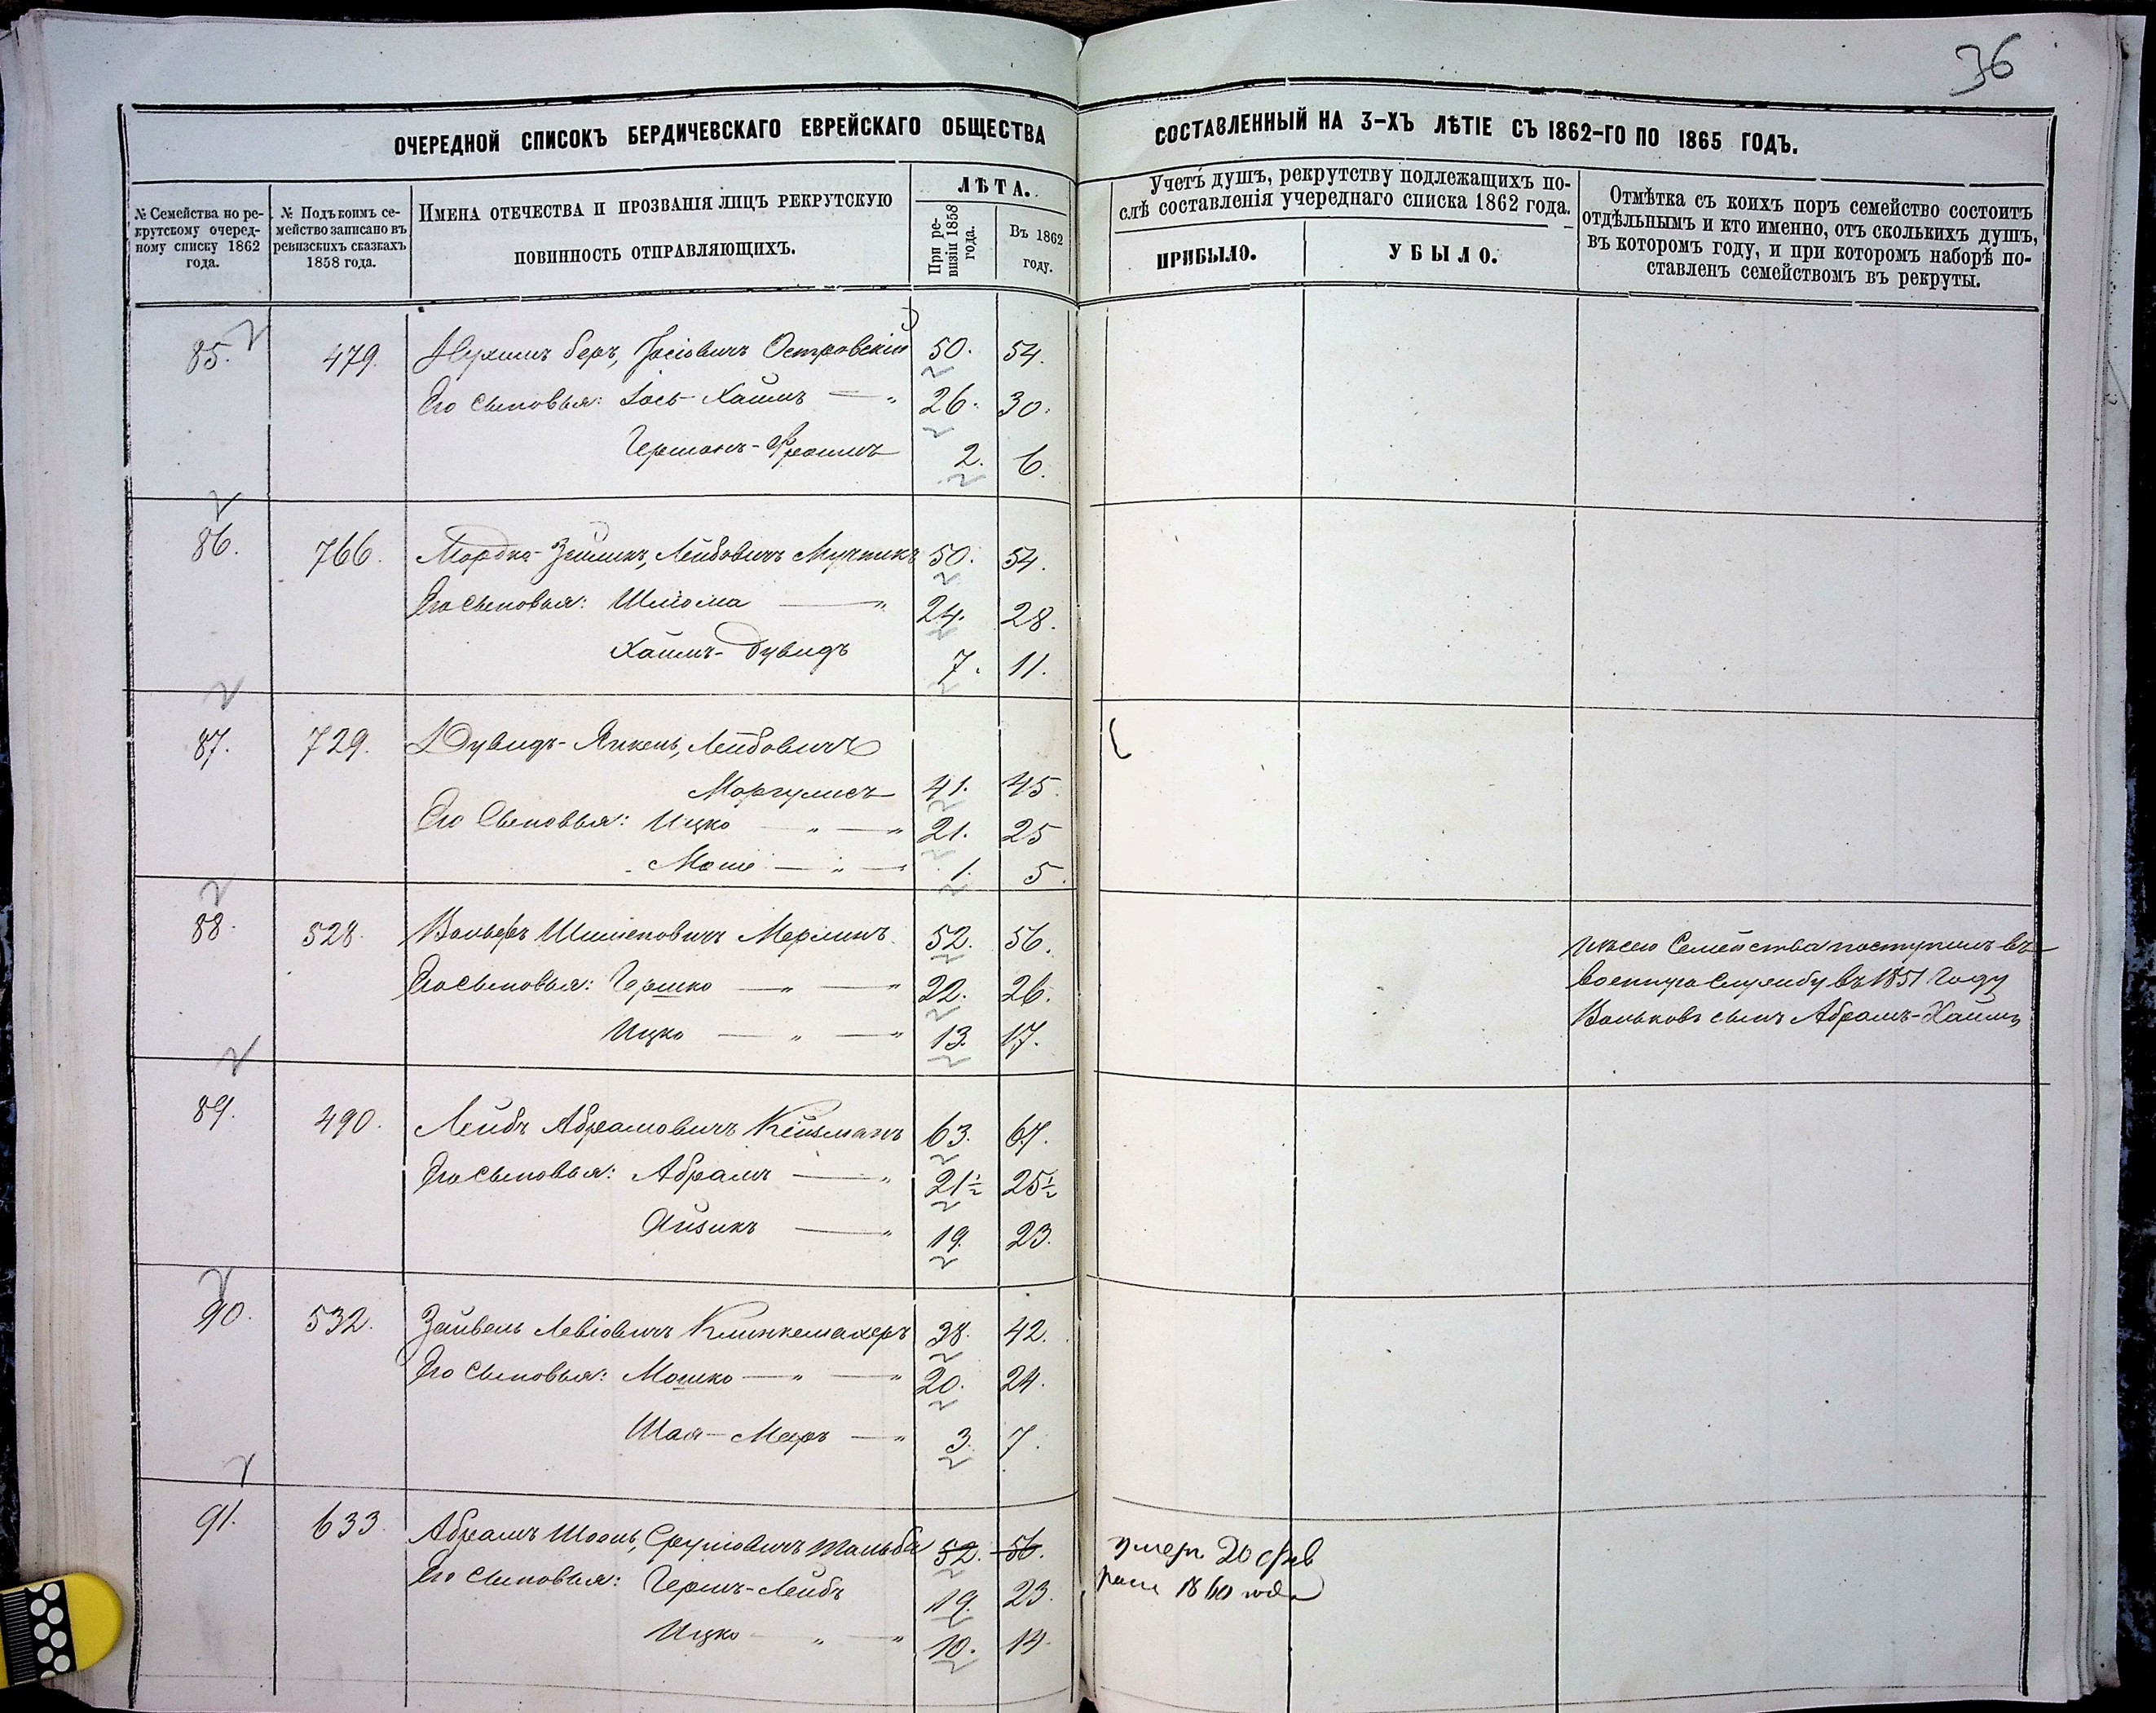 36
ОЧЕРЕДНОЙ СПИСОКЪ БЕРДИЧЕВСКАГО ЕВРЕЙСКАГО ОБЩЕСТВА
СОСТАВЛЕННЫЙ НА 3-ХЪ ЛѢТІЕ СЪ 1862-ГО ПО 1865 ГОДЪ.
№ Семейства по ре-
крутскому очеред-
ному списку 1862
года.
№ Подъ коимъ се-
мейство записано въ
ревизскихъ сказкахъ
1858 года.
ИМЕНА ОТЕЧЕСТВА И ПРОЗВАНІЯ ЛИЦЪ РЕКРУТСКУЮ
ПОВИННОСТЬ ОТПРАВЛЯЮЩИХЪ.
ЛѢТА.
При ре-
визіи 1858
года.
Въ 1862
году.
Учетъ душъ, рекрутству подлежащихъ по-
слѣ составленія учереднаго списка 1862 года.
ПРИБЫЛО.
УБЫЛО.
Отмѣтка съ коихъ поръ семейство состоитъ
отдѣльнымъ и кто именно, отъ сколькихъ душъ,
въ которомъ году, и при которомъ наборѣ по-
ставленъ семействомъ въ рекруты.
85. 479. Нухимъ Беръ, Іосіовичъ Островскій 50. 54.
Его Сыновья: Іось-Хаимъ — „ 26. 30.
Гершонъ-Фроимъ 2. 6.
86. 766. Мордко-Зейликъ, Лейбовичъ Мучникъ 50. 54.
Его сыновья: Шлёома — „ 24. 28.
Хаимъ-Дувидъ 7. 11.
87. 729. Дувидъ-Янкель, Лейбовичъ
Моргулисъ 41. 45.
Его Сыновья: Ицко — „ — „ 21. 25
Мошè — „ — 1. 5.
88. 528. Вольфъ Шмелековичъ Мерлинъ 52. 56.
Его сыновья: Гершко — „ — „ 22. 26.
Ицко — „ — „ 13. 17.
Изъ сего Семейства поступилъ въ
военную службу въ 1851 Году
Вольковъ сынъ Абрамъ-Хаимъ
89. 490. Лейбъ Абрамовичъ Кейзманъ 63. 67.
Его сыновья: Абрамъ — „ 21½ 25½
Айзикъ — „ 19. 23.
90. 532. Зайвель Левіовичъ Клинкемахеръ 38. 42.
Его Сыновья: Мошко — „ — „ 20. 24.
Шая-Меръ — „ 3. 7.
91. 633. Абрамъ Шоель, Сруліовичъ Тальба 52. 56.
Его сыновья: Гершъ-Лейбъ 19. 23.
Ицко — „ — „ 10. 14.
умеръ 20 фев
раля 1860 года